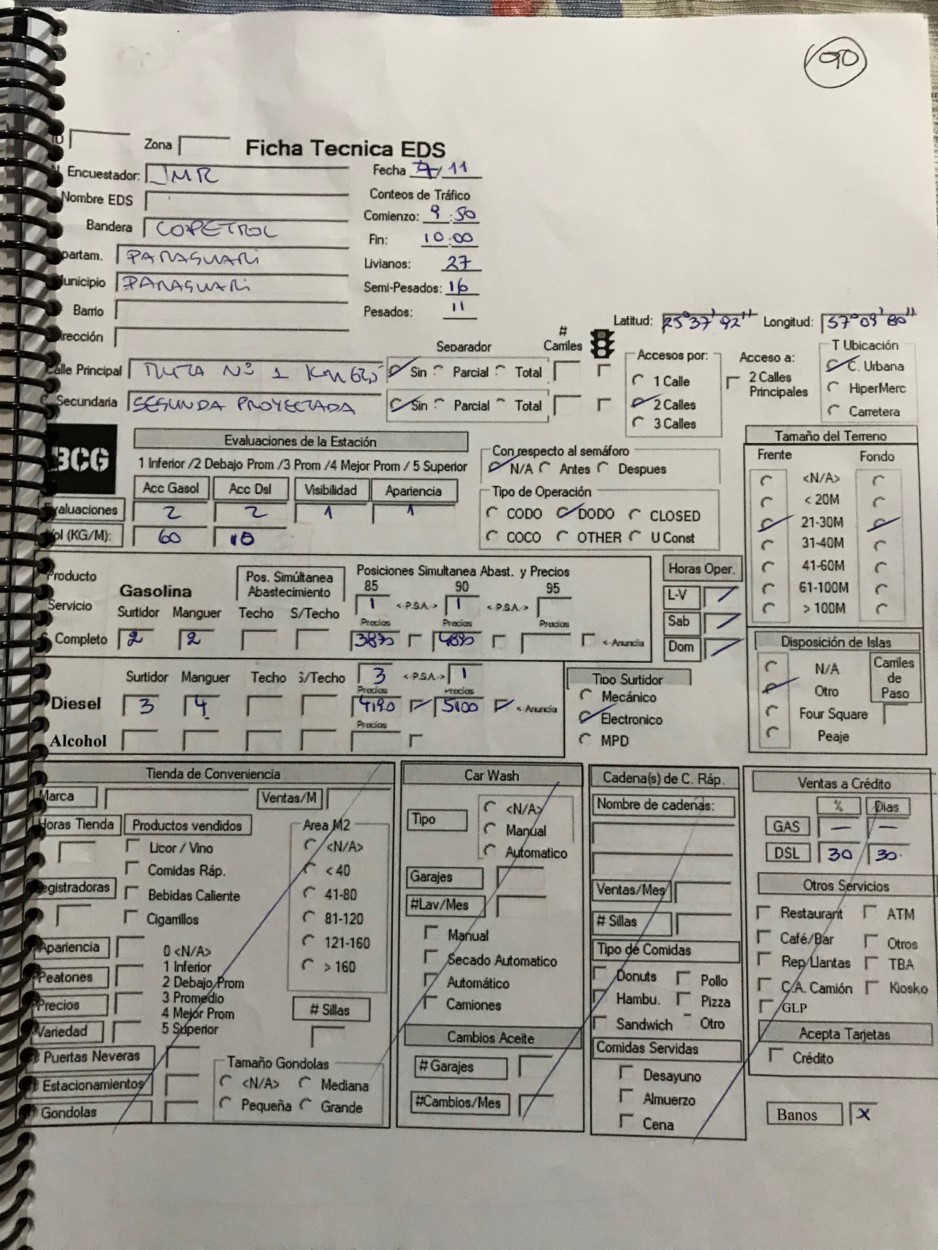 90
Zona
Ficha Tecnica EDS
Encuestador: JMR
Fecha 7/11
Nombre EDS
Conteos de Tráfico
Bandera COPETROL
Comienzo: 9:50
Fin: 10:00
partam. PARAGUARI
Livianos: 27
unicipio PARAGUARI
Semi-Pesados: 16
Barrio
Pesados: 11
rección
Latitud: 25°37'92" Longitud: 57°09'80"
Separador # Carriles
Accesos por: Acceso a: T Ubicación
alle Principal RUTA Nº 1 KM Sin Parcial Total
1 Calle 2 Calles Principales C. Urbana
2 Calles HiperMerc
Secundaria SEGUNDA PROYECTADA Sin Parcial Total
3 Calles Carretera
BCG
Evaluaciones de la Estación
1 Inferior /2 Debajo Prom /3 Prom /4 Mejor Prom / 5 Superior
Acc Gasol Acc Dsl Visibilidad Apariencia
aluaciones 2 2 1 1
ol (KG/M): 60
Con respecto al semáforo
N/A Antes Despues
Tipo de Operación
CODO DODO CLOSED
COCO OTHER U Const
Tamaño del Terreno
Frente Fondo
<N/A>
< 20M
21-30M
31-40M
41-60M
61-100M
> 100M
Producto Gasolina Pos. Simúltanea Abastecimiento Posiciones Simultanea Abast. y Precios
85 90 95
Servicio Surtidor Manguer Techo S/Techo 1 <-P.S.A.-> 1 <-P.S.A.->
Precios Precios Precios
Completo 2 2 3890 4890 <-Anuncia
Horas Oper.
L-V
Sab
Dom
Surtidor Manguer Techo S/Techo 3 <-P.S.A.-> 1
Precios Precios
Diesel 3 4 4190 5100 <-Anuncia
Precios
Alcohol
Tipo Surtidor
Mecánico
Electronico
MPD
Disposición de Islas
N/A Carriles de Paso
Otro
Four Square
Peaje
Tienda de Conveniencia
Marca Ventas/M
Horas Tienda Productos vendidos Area M2
Licor / Vino <N/A>
Comidas Ráp. < 40
egistradoras Bebidas Caliente 41-80
Cigarrillos 81-120
121-160
> 160
Apariencia 0 <N/A>
1 Inferior
Peatones 2 Debajo Prom
Precios 3 Promedio
4 Mejor Prom # Sillas
Variedad 5 Superior
# Puertas Neveras
# Estacionamientos
# Gondolas
Tamaño Gondolas
<N/A> Mediana
Pequeña Grande
Car Wash
Tipo <N/A>
Manual
Automatico
Garajes
#Lav/Mes
Manual
Secado Automatico
Automático
Camiones
Cambios Aceite
# Garajes
#Cambios/Mes
Cadena(s) de C. Ráp.
Nombre de cadenas:
Ventas/Mes
# Sillas
Tipo de Comidas
Donuts Pollo
Hambu. Pizza
Sandwich Otro
Comidas Servidas
Desayuno
Almuerzo
Cena
Ventas a Crédito
% Dias
GAS — —
DSL 30 30
Otros Servicios
Restaurant ATM
Café/Bar Otros
Rep/Llantas TBA
C.A. Camión Kiosko
GLP
Acepta Tarjetas
Crédito
Banos X